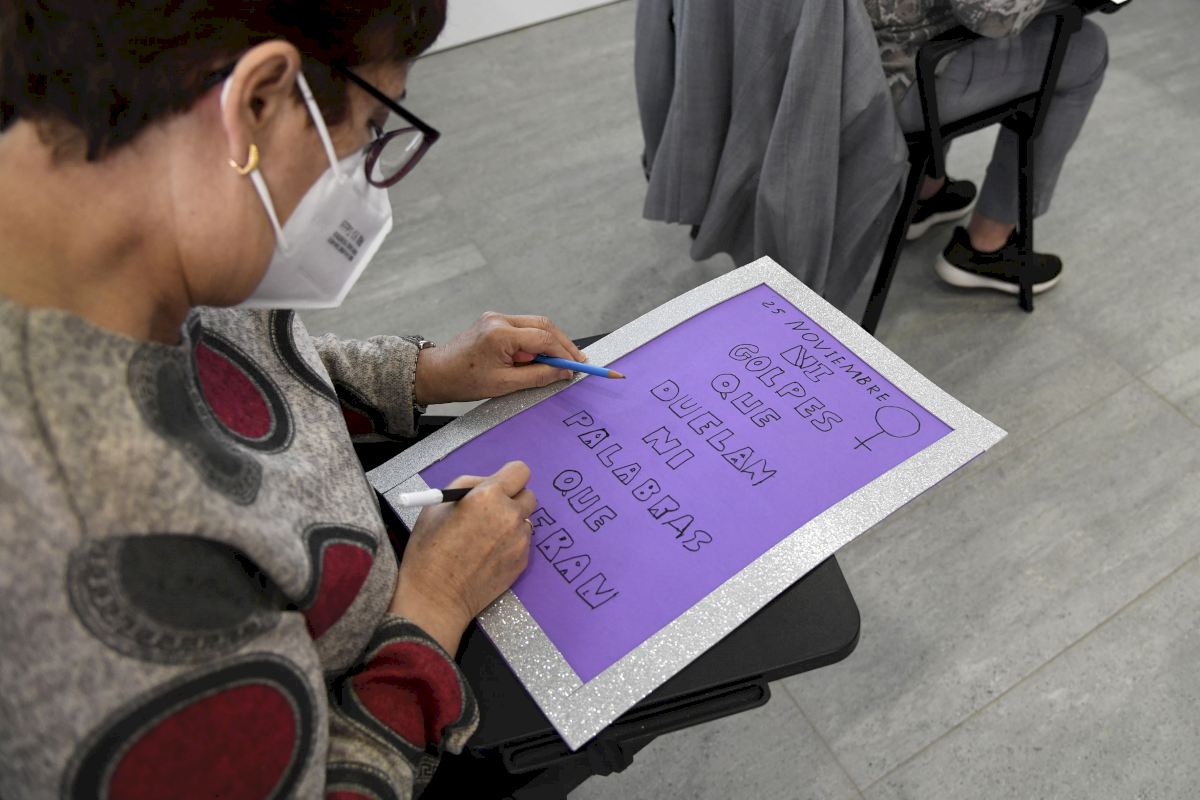 25 NOVIEMBRE
NI
GOLPES
QUE
DUELAN
NI
PALABRAS
QUE
ERAN